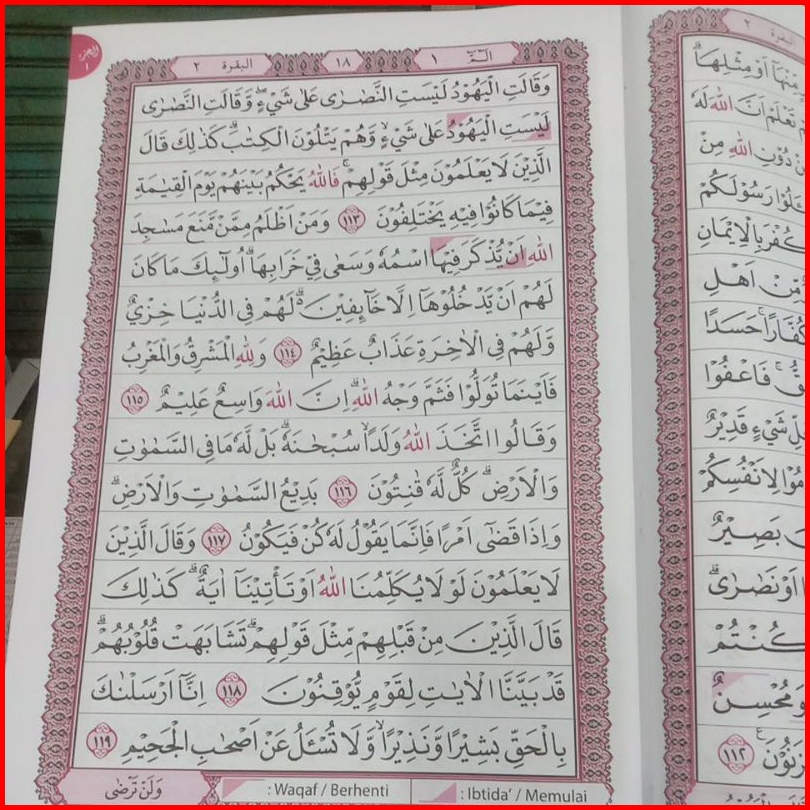 الجزء ١
البقرة ٢
١٨
الٓمّٓ ١
وَقَالَتِ الْيَهُوْدُ لَيْسَتِ النَّصٰرٰى عَلٰى شَيْءٍۖ وَّقَالَتِ النَّصٰرٰى
لَيْسَتِ الْيَهُوْدُ عَلٰى شَيْءٍۙ وَّهُمْ يَتْلُوْنَ الْكِتٰبَۗ كَذٰلِكَ قَالَ
الَّذِيْنَ لَا يَعْلَمُوْنَ مِثْلَ قَوْلِهِمْۚ فَاللّٰهُ يَحْكُمُ بَيْنَهُمْ يَوْمَ الْقِيٰمَةِ
فِيْمَا كَانُوْا فِيْهِ يَخْتَلِفُوْنَ ١١٣ وَمَنْ اَظْلَمُ مِمَّنْ مَّنَعَ مَسٰجِدَ
اللّٰهِ اَنْ يُّذْكَرَ فِيْهَا اسْمُهٗ وَسَعٰى فِيْ خَرَابِهَاۗ اُولٰۤىِٕكَ مَا كَانَ
لَهُمْ اَنْ يَّدْخُلُوْهَآ اِلَّا خَاۤىِٕفِيْنَ ۗ لَهُمْ فِى الدُّنْيَا خِزْيٌ
وَّلَهُمْ فِى الْاٰخِرَةِ عَذَابٌ عَظِيْمٌ ١١٤ وَلِلّٰهِ الْمَشْرِقُ وَالْمَغْرِبُ
فَاَيْنَمَا تُوَلُّوْا فَثَمَّ وَجْهُ اللّٰهِ ۗ اِنَّ اللّٰهَ وَاسِعٌ عَلِيْمٌ ١١٥
وَقَالُوا اتَّخَذَ اللّٰهُ وَلَدًاۙ سُبْحٰنَهٗۗ بَلْ لَّهٗ مَا فِى السَّمٰوٰتِ
وَالْاَرْضِۗ كُلٌّ لَّهٗ قٰنِتُوْنَ ١١٦ بَدِيْعُ السَّمٰوٰتِ وَالْاَرْضِۗ
وَاِذَا قَضٰٓى اَمْرًا فَاِنَّمَا يَقُوْلُ لَهٗ كُنْ فَيَكُوْنُ ١١٧ وَقَالَ الَّذِيْنَ
لَا يَعْلَمُوْنَ لَوْ لَا يُكَلِّمُنَا اللّٰهُ اَوْ تَأْتِيْنَآ اٰيَةٌ ۗ كَذٰلِكَ
قَالَ الَّذِيْنَ مِنْ قَبْلِهِمْ مِّثْلَ قَوْلِهِمْۘ تَشَابَهَتْ قُلُوْبُهُمْۗ
قَدْ بَيَّنَّا الْاٰيٰتِ لِقَوْمٍ يُّوْقِنُوْنَ ١١٨ اِنَّآ اَرْسَلْنٰكَ
بِالْحَقِّ بَشِيْرًا وَّنَذِيْرًاۙ وَّلَا تُسْـَٔلُ عَنْ اَصْحٰبِ الْجَحِيْمِ ١١٩
وَلَنْ تَرْضٰى
: Waqaf / Berhenti
: Ibtida' / Memulai
البقرة ٢
مِنْهَآ اَوْ مِثْلِهَاۗ
تَعْلَمْ اَنَّ اللّٰهَ لَهٗ
دُوْنِ اللّٰهِ مِنْ
رَسُوْلَكُمْ
بِالْاِيْمَانِ
مِّنْ اَهْلِ
كُفَّارًاۚ حَسَدًا
فَاعْفُوْا
شَيْءٍ قَدِيْرٌ
لِاَنْفُسِكُمْ
بَصِيْرٌ
اَوْ نَصٰرٰىۗ
كُنْتُمْ
مُحْسِنٌ
١١٢